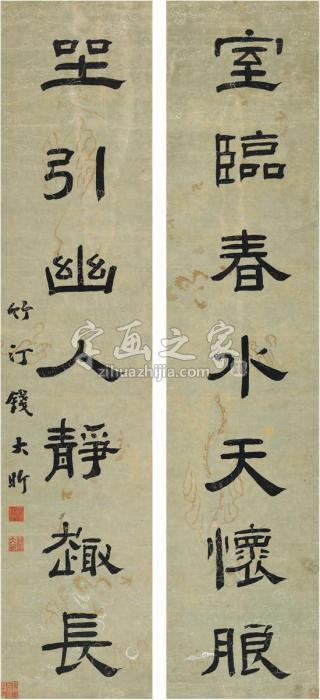 室臨春水天懷朖
坐引幽人靜趣長
竹汀錢大昕
定画之家
zihuazhijia.com